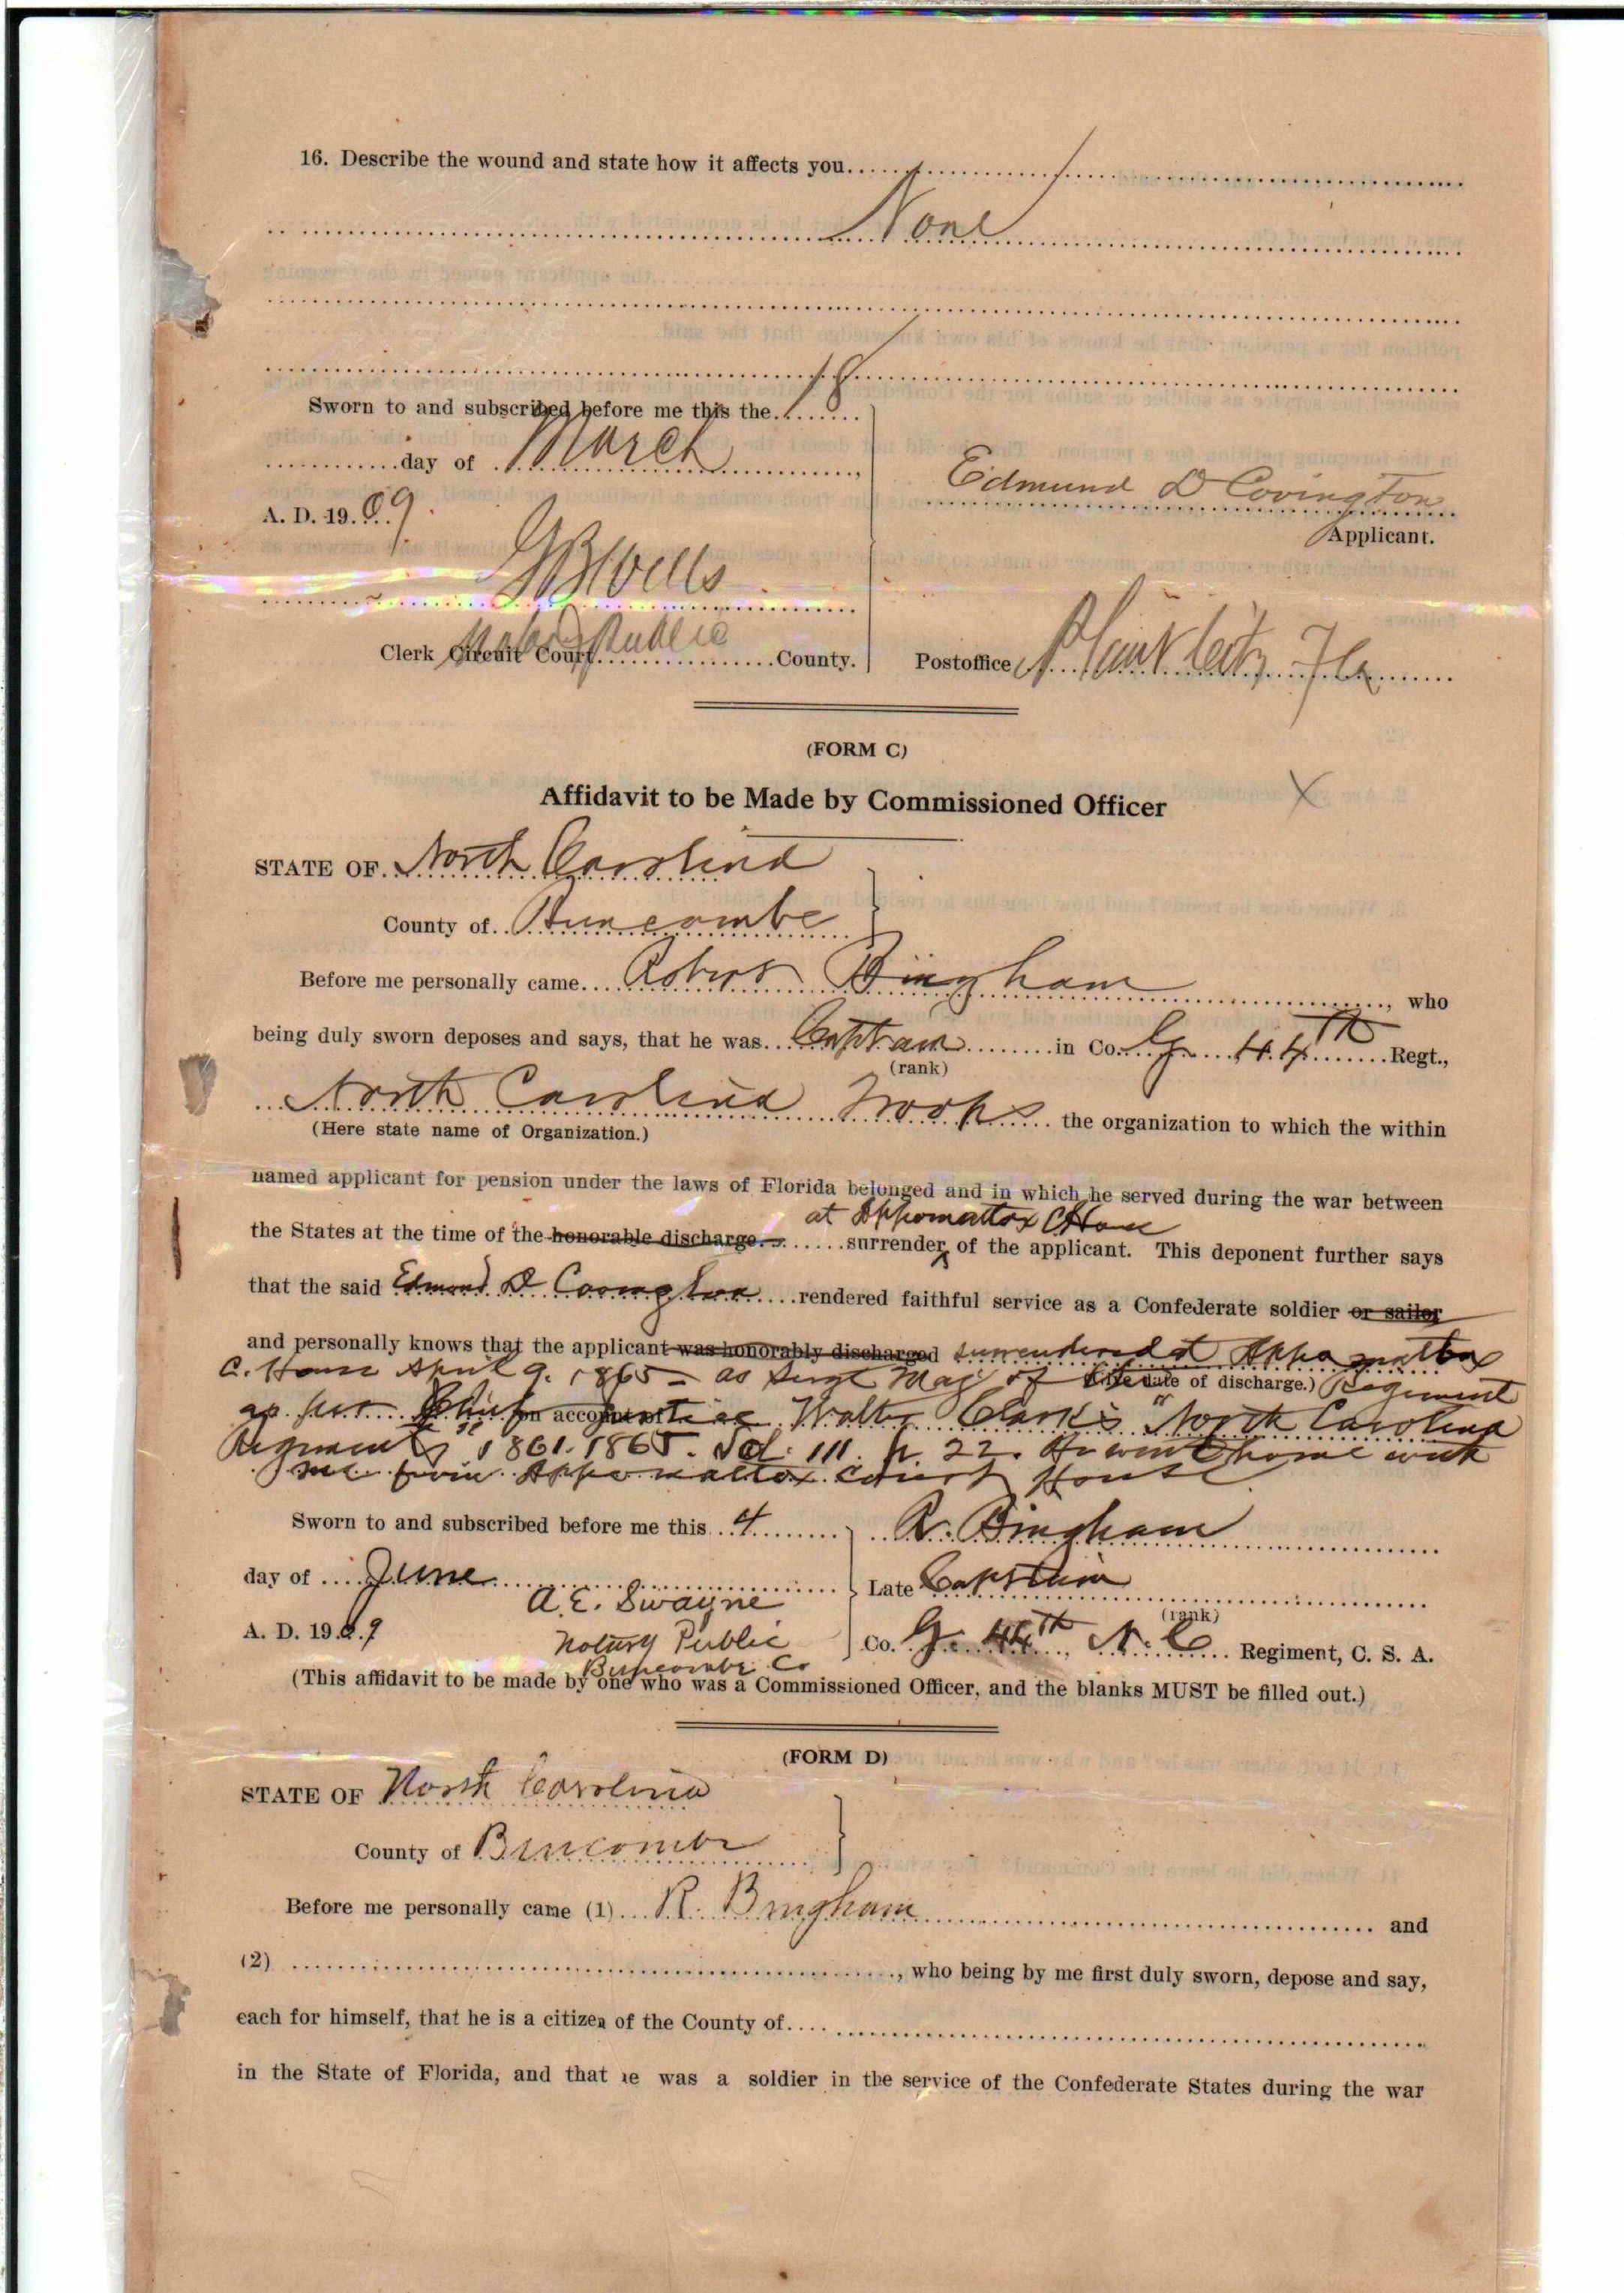 16. Describe the wound and state how it affects you
None
18
Sworn to and subscribed before me this the
day of March
A. D. 19 09.
Edmund D Covington
Applicant.
G B Wells
Notary Public
Clerk Circuit Court County.
Postoffice Plant City Fla
(FORM C)
Affidavit to be Made by Commissioned Officer
X
STATE OF North Carolina
County of Buncombe
Before me personally came Robert Bingham, who
being duly sworn deposes and says, that he was Captain in Co. G. 44th Regt.,
(rank)
North Carolina Troops the organization to which the within
(Here state name of Organization.)
named applicant for pension under the laws of Florida belonged and in which he served during the war between
at Appomattox C House
the States at the time of the honorable discharge surrender of the applicant. This deponent further says
that the said Edmund D Covington rendered faithful service as a Confederate soldier or sailor
and personally knows that the applicant was honorably discharged surrendered at Appomattox
C. House April 9. 1865 - as Sergt Maj of (Give date of discharge.) Regiment
as per Chief on account of Justice Walter Clark's "North Carolina
Regiments" 1861-1865. Vol. III p. 22. He went home with
me from Appomattox Court House.
Sworn to and subscribed before me this 4
R. Bingham
day of June
Late Captain
A. E. Swayne
(rank)
A. D. 19 0 9
Notary Public
Co. G. 44th, N. C. Regiment, C. S. A.
Buncombe Co
(This affidavit to be made by one who was a Commissioned Officer, and the blanks MUST be filled out.)
(FORM D)
STATE OF North Carolina
County of Buncombe
Before me personally came (1) R. Bingham and
(2) , who being by me first duly sworn, depose and say,
each for himself, that he is a citizen of the County of
in the State of Florida, and that he was a soldier in the service of the Confederate States during the war